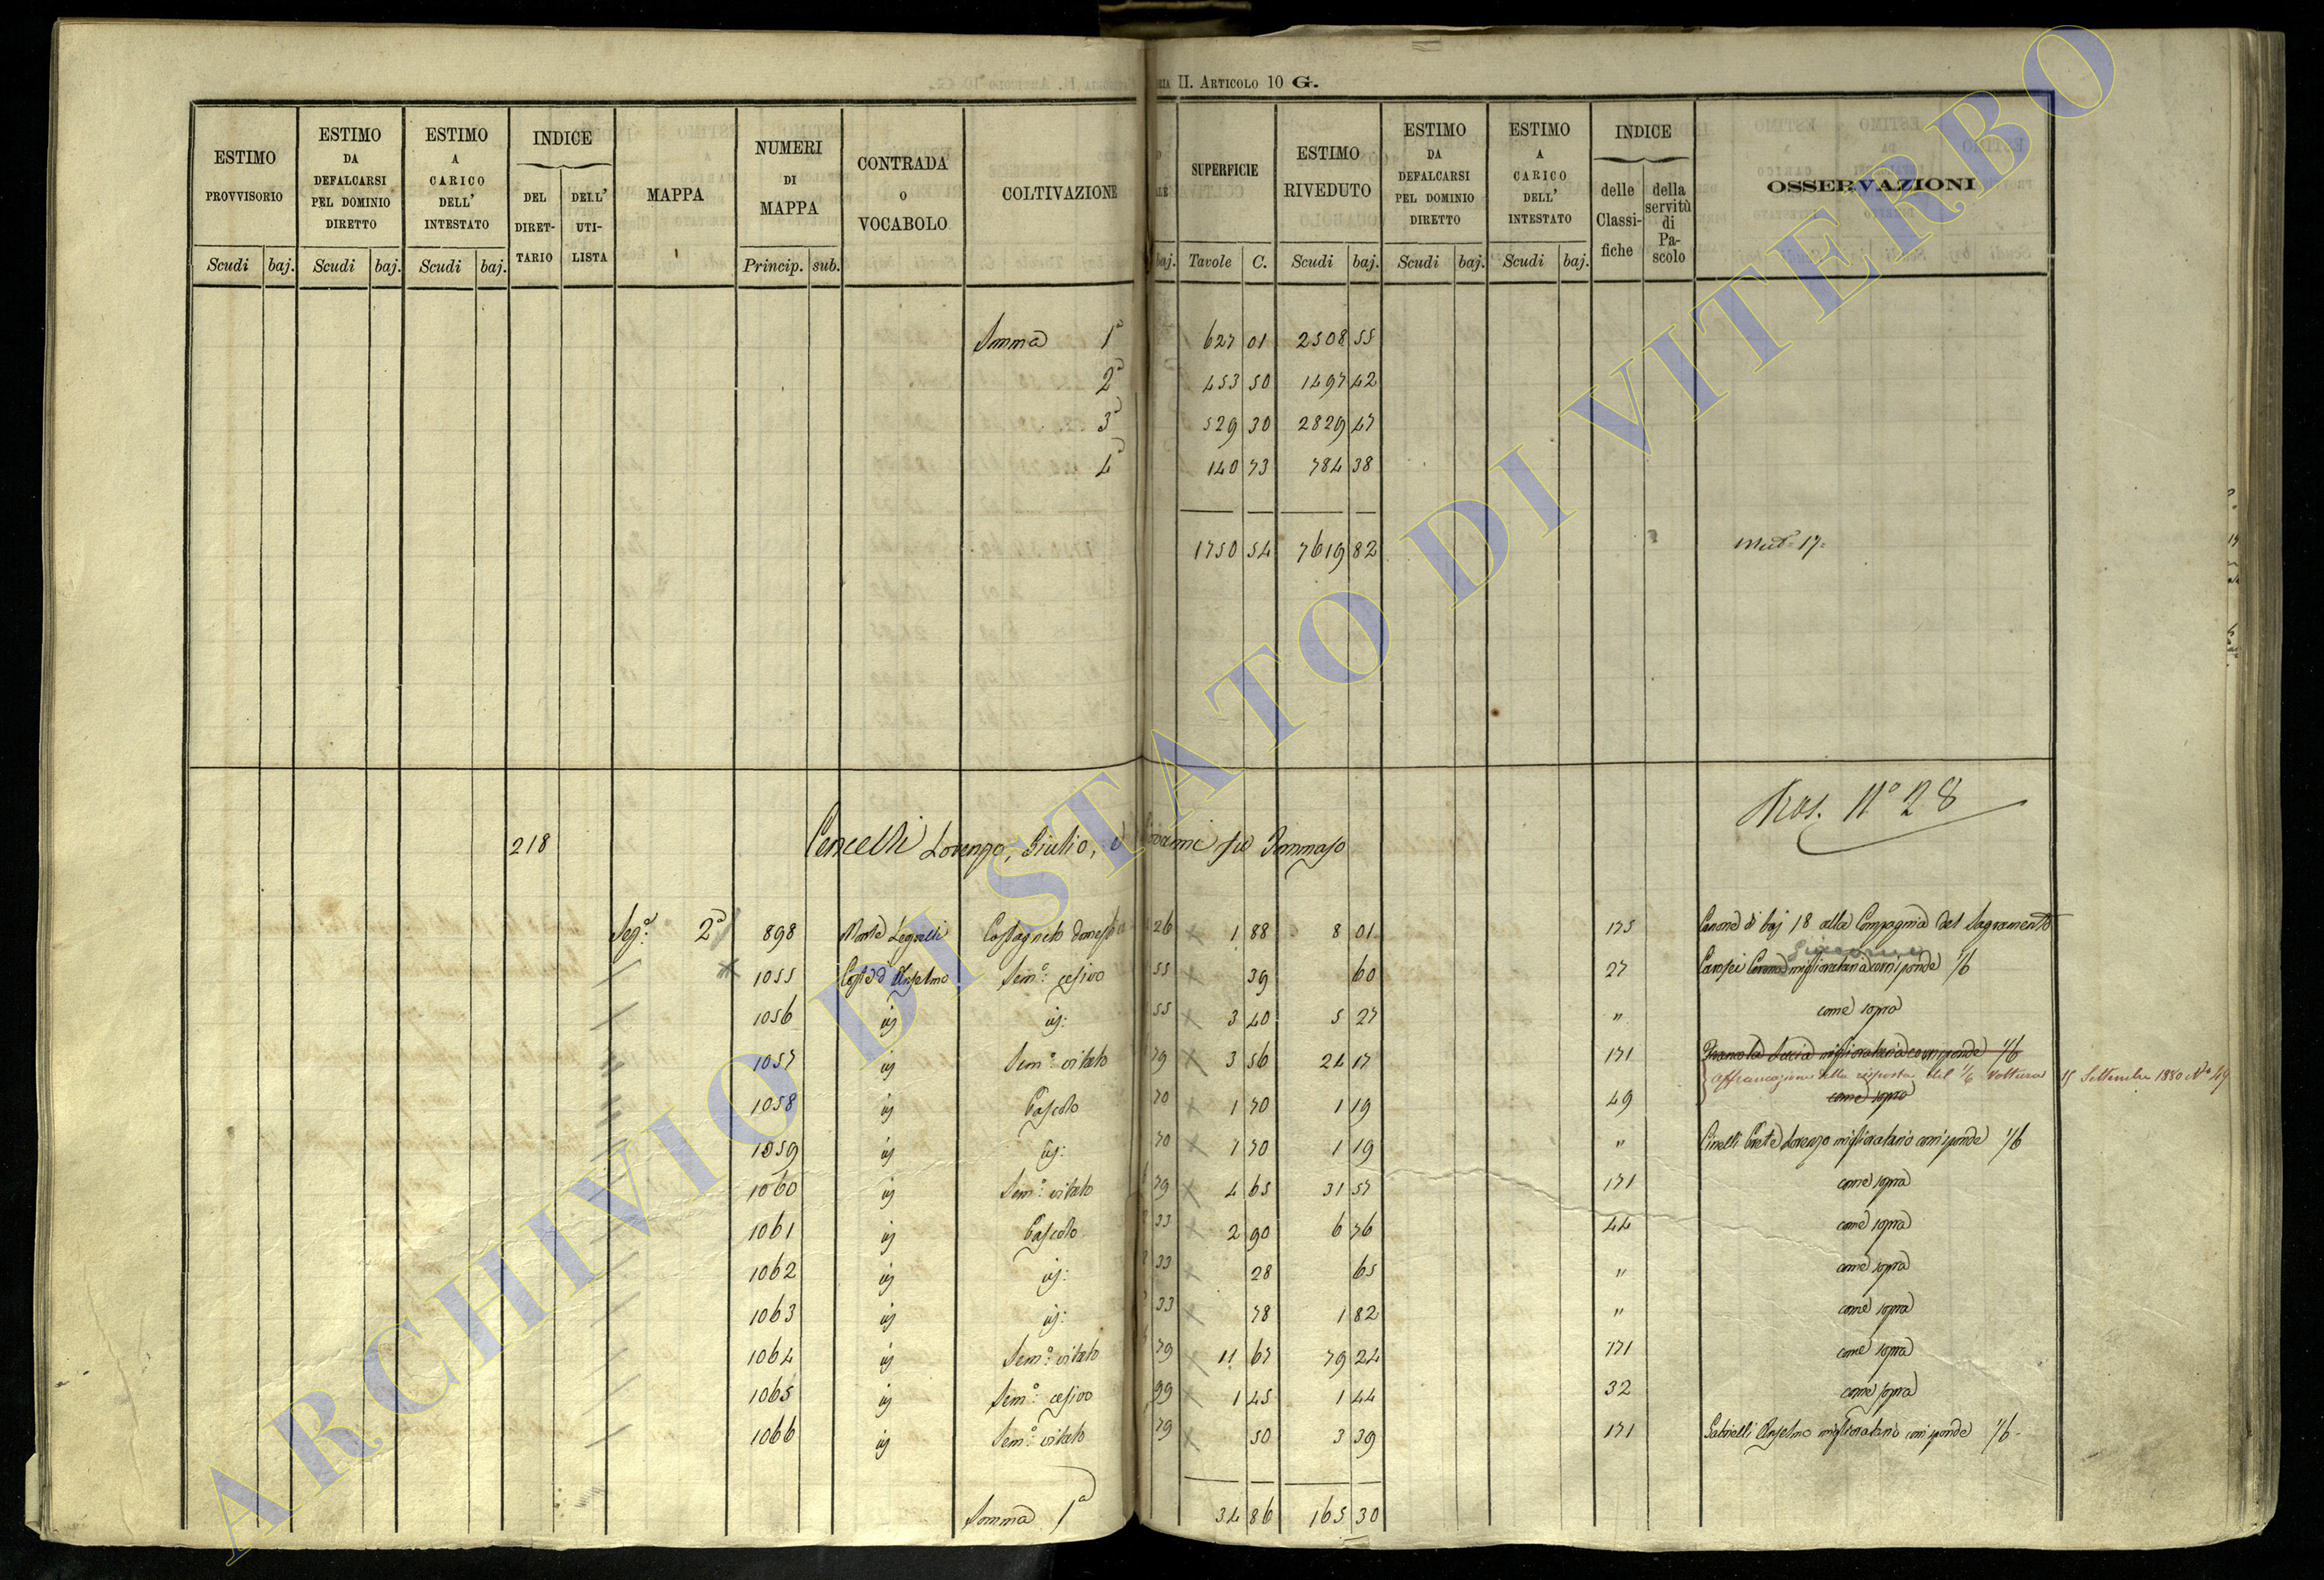 RIA II. ARTICOLO 10 G.
ESTIMO PROVVISORIO | ESTIMO DA DEFALCARSI PEL DOMINIO DIRETTO | ESTIMO A CARICO DELL' INTESTATO | INDICE DEL DIRET-TARIO | DELL' UTI-LISTA | MAPPA | NUMERI DI MAPPA | CONTRADA O VOCABOLO | COLTIVAZIONE | SUPERFICIE | ESTIMO RIVEDUTO | ESTIMO DA DEFALCARSI PEL DOMINIO DIRETTO | ESTIMO A CARICO DELL' INTESTATO | INDICE delle Classi-fiche | della servitù di Pa-scolo | OSSERVAZIONI
Scudi baj. Scudi baj. Scudi baj. Princip. sub. baj. Tavole C. Scudi baj. Scudi baj. Scudi baj.
Somma 1ª 627 01 2508 55
2ª 453 50 1497 42
3ª 529 30 2829 47
4ª 140 73 784 38
1750 54 7619 82 Mut. 17=
Pos. Nº 28
218 Cencelli Lorenzo, Giulio, e Giovanni fu Tommaso
Sezº 2ª 898 Monte Castagneto domestico 26 1 88 8 01 175 Canone di baj 18 alla Compagnia del Sagramento
1055 Costa d' Anselmo Semº cesivo 55 39 60 27 migliorataria corrisponde 1/6
1056 ij ij: 55 3 40 5 27 " come sopra
1057 ij Semº vitato 79 3 56 24 17 171 Lucia migliorataria corrisponde 1/6
Affrancazione della risposta del 1/6 Voltura 15 Settembre 1880 Nº 49
1058 ij Pascolo 70 1 70 1 19 49 come sopra
1059 ij ij: 70 1 70 1 19 " Cinelli Prete Lorenzo miglioratario corrisponde 1/6
1060 ij Semº vitato 79 4 65 31 57 171 come sopra
1061 ij Pascolo 33 2 90 6 76 44 come sopra
1062 ij ij: 33 28 65 " come sopra
1063 ij ij: 33 78 1 82 " come sopra
1064 ij Semº vitato 79 11 67 79 24 171 come sopra
1065 ij Semº cesivo 99 1 45 1 44 32 come sopra
1066 ij Semº vitato 79 50 3 39 171 Gabrielli Anselmo miglioratario corrisponde 1/6
Somma 1ª 34 86 165 30
ARCHIVIO DI STATO DI VITERBO